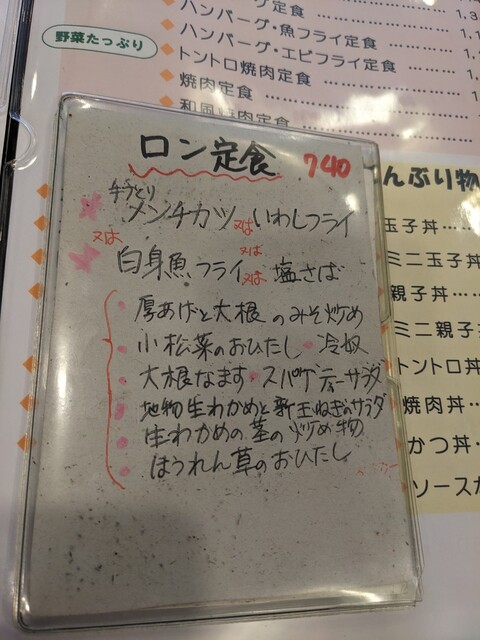 定食 1,3
ハンバーグ・魚フライ定食 1,
ハンバーグ・エビフライ定食 1,
トントロ焼肉定食
焼肉定食
和風焼肉定食
野菜たっぷり
ロン定食 740
メンチカツ 又は いわしフライ
又は 又は
白身魚フライ 又は 塩さば
厚あげと大根のみそ炒め
小松菜のおひたし・冷奴
大根なます・スパゲティーサラダ
地物生わかめと新玉ねぎのサラダ
生わかめの茎の炒め物
ほうれん草のおひたし
んぶり物
玉子丼
ミニ玉子丼
親子丼
ミニ親子
トントロ丼
焼肉丼
かつ丼
ソースか